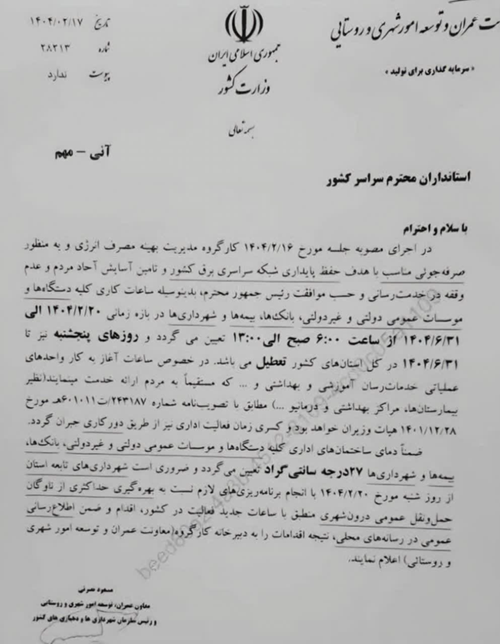 ت عمران و توسعه امور شهری و روستایی
« سرمایه گذاری برای تولید »
جمهوری اسلامی ایران
وزارت کشور
بسمه تعالی
تاریخ ۱۴۰۴/۰۲/۱۷
شماره ۲۸۲۱۳
پیوست ندارد
آنی - مهم
استانداران محترم سراسر کشور
با سلام و احترام
در اجرای مصوبه جلسه مورخ ۱۴۰۴/۲/۱۶ کارگروه مدیریت بهینه مصرف انرژی و به منظور
صرفه‌جوئی مناسب با هدف حفظ پایداری شبکه سراسری برق کشور و تامین آسایش آحاد مردم و عدم
وقفه در خدمت‌رسانی و حسب موافقت رئیس جمهور محترم، بدینوسیله ساعات کاری کلیه دستگاه‌ها و
موسسات عمومی دولتی و غیردولتی، بانک‌ها، بیمه‌ها و شهرداری‌ها در بازه زمانی ۱۴۰۴/۲/۲۰ الی
۱۴۰۴/۶/۳۱ از ساعت ۶:۰۰ صبح الی ۱۳:۰۰ تعیین می گردد و روزهای پنجشنبه نیز تا
۱۴۰۴/۶/۳۱ در کل استان‌های کشور تعطیل می باشد. در خصوص ساعات آغاز به کار واحدهای
عملیاتی خدمات‌رسان آموزشی و بهداشتی و ... که مستقیماً به مردم ارائه خدمت مینمایند(نظیر
بیمارستان‌ها، مراکز بهداشتی و درمانی‌و ...) مطابق با تصویب‌نامه شماره ۲۴۳۱۸۷/ت۶۰۱۰۱۱هـ مورخ
۱۴۰۱/۱۲/۲۸ هیات وزیران خواهد بود و کسری زمان فعالیت اداری نیز از طریق دورکاری جبران گردد.
ضمناً دمای ساختمان‌های اداری کلیه دستگاه‌ها و موسسات عمومی دولتی و غیردولتی، بانک‌ها،
بیمه‌ها و شهرداری‌ها ۲۷درجه سانتی‌گراد تعیین می‌گردد و ضروری است شهرداری‌های تابعه استان
از روز شنبه مورخ ۱۴۰۴/۲/۲۰ با انجام برنامه‌ریزی‌های لازم نسبت به بهره‌گیری حداکثری از ناوگان
حمل‌ونقل عمومی درون‌شهری منطبق با ساعات جدید فعالیت در کشور، اقدام و ضمن اطلاع‌رسانی
عمومی در رسانه‌های محلی، نتیجه اقدامات را به دبیرخانه کارگروه(معاونت عمران و توسعه امور شهری
و روستائی) اعلام نمایند.
مسعود نصرتی
معاون عمران، توسعه امور شهری و روستایی
و رئیس سازمان شهرداری ها و دهیاری های کشور